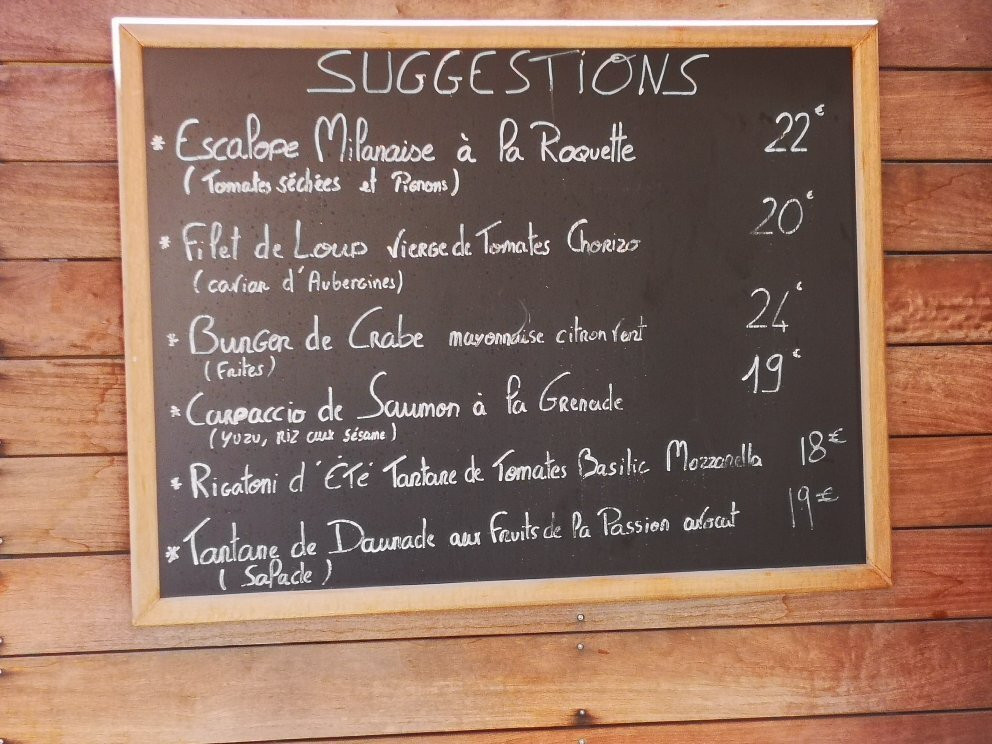 SUGGESTIONS
* Escalope Milanaise à la Roquette 22€
(Tomates séchées et Pignons)
* Filet de Loup Vierge de Tomates Chorizo 20€
(caviar d'Aubergines)
* Burger de Crabe mayonnaise citron vert 24€
(Frites)
* Carpaccio de Saumon à la Grenade 19€
(Yuzu, Riz aux Sésame)
* Rigatoni d'ÉTÉ Tartare de Tomates Basilic Mozzarella 18€
* Tartare de Daurade aux Fruits de la Passion avocat 19€
(Salade)